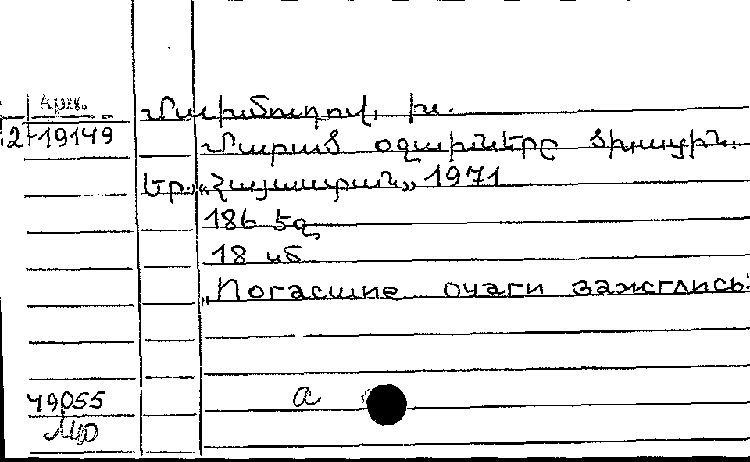 Արխ.
2-19149
Մախմուդով, Խ.
Մարած օջախները ծխացին.
Եր. «Հայաստան» 1971
186 էջ
18 սմ
"Погасшие очаги зажглись."
79055
а